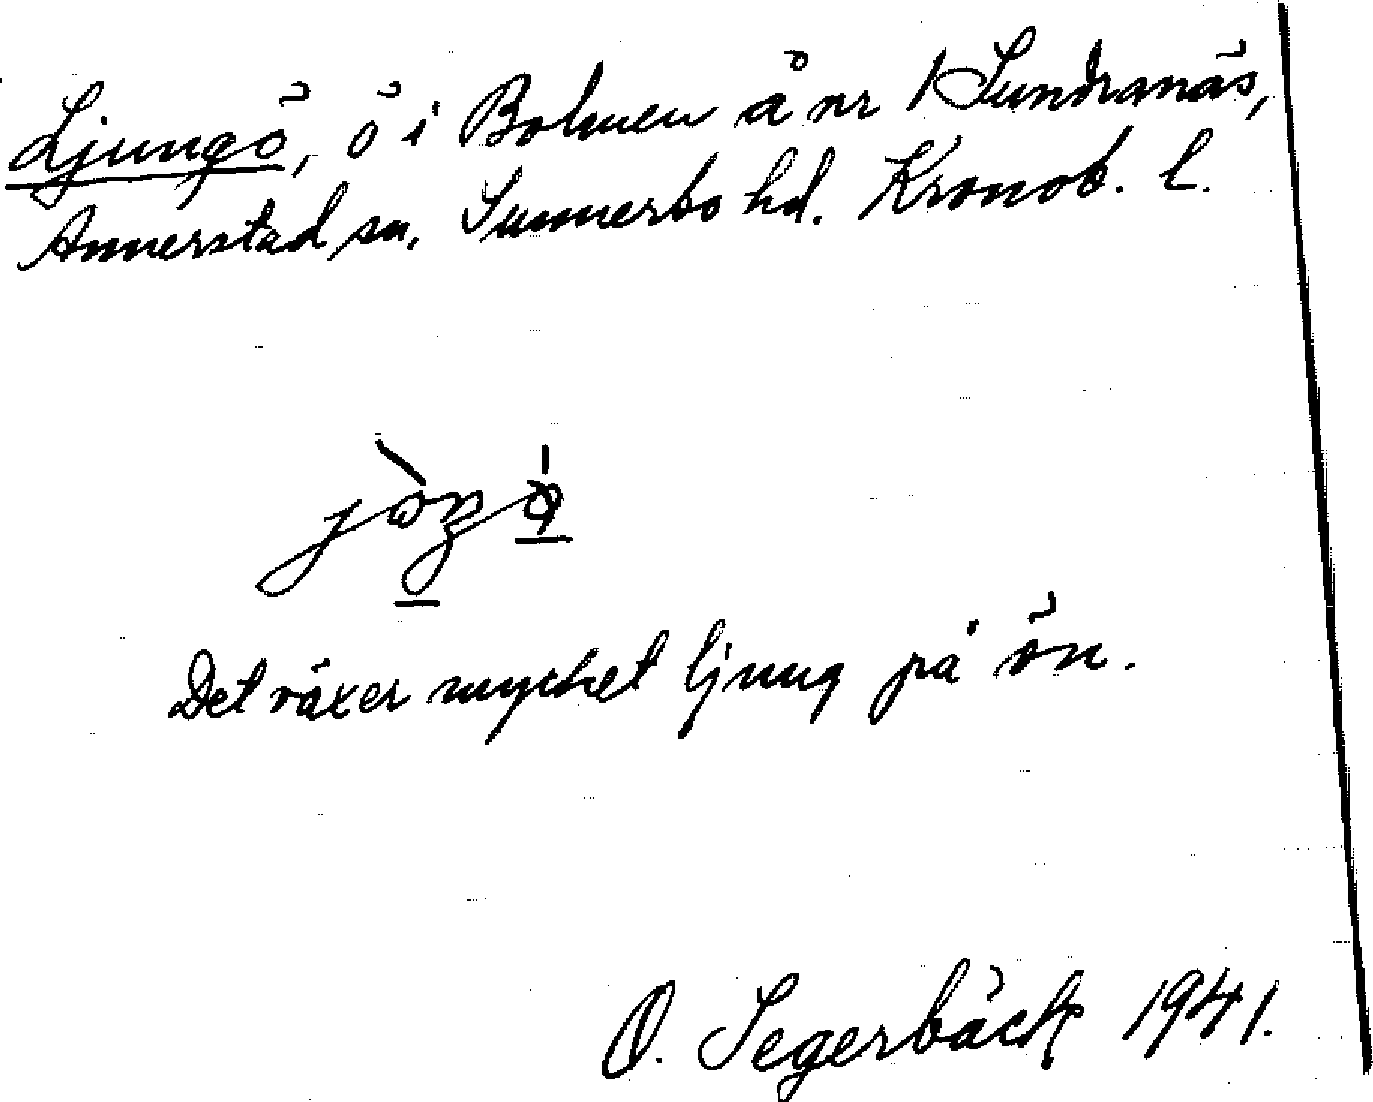 Ljungö, ö i Bolmen å nr 1 Sundranäs,
Annerstad sn. Sunnerbo hd. Kronob. l.
Det växer mycket ljung på ön.
O. Segerbäck 1941.